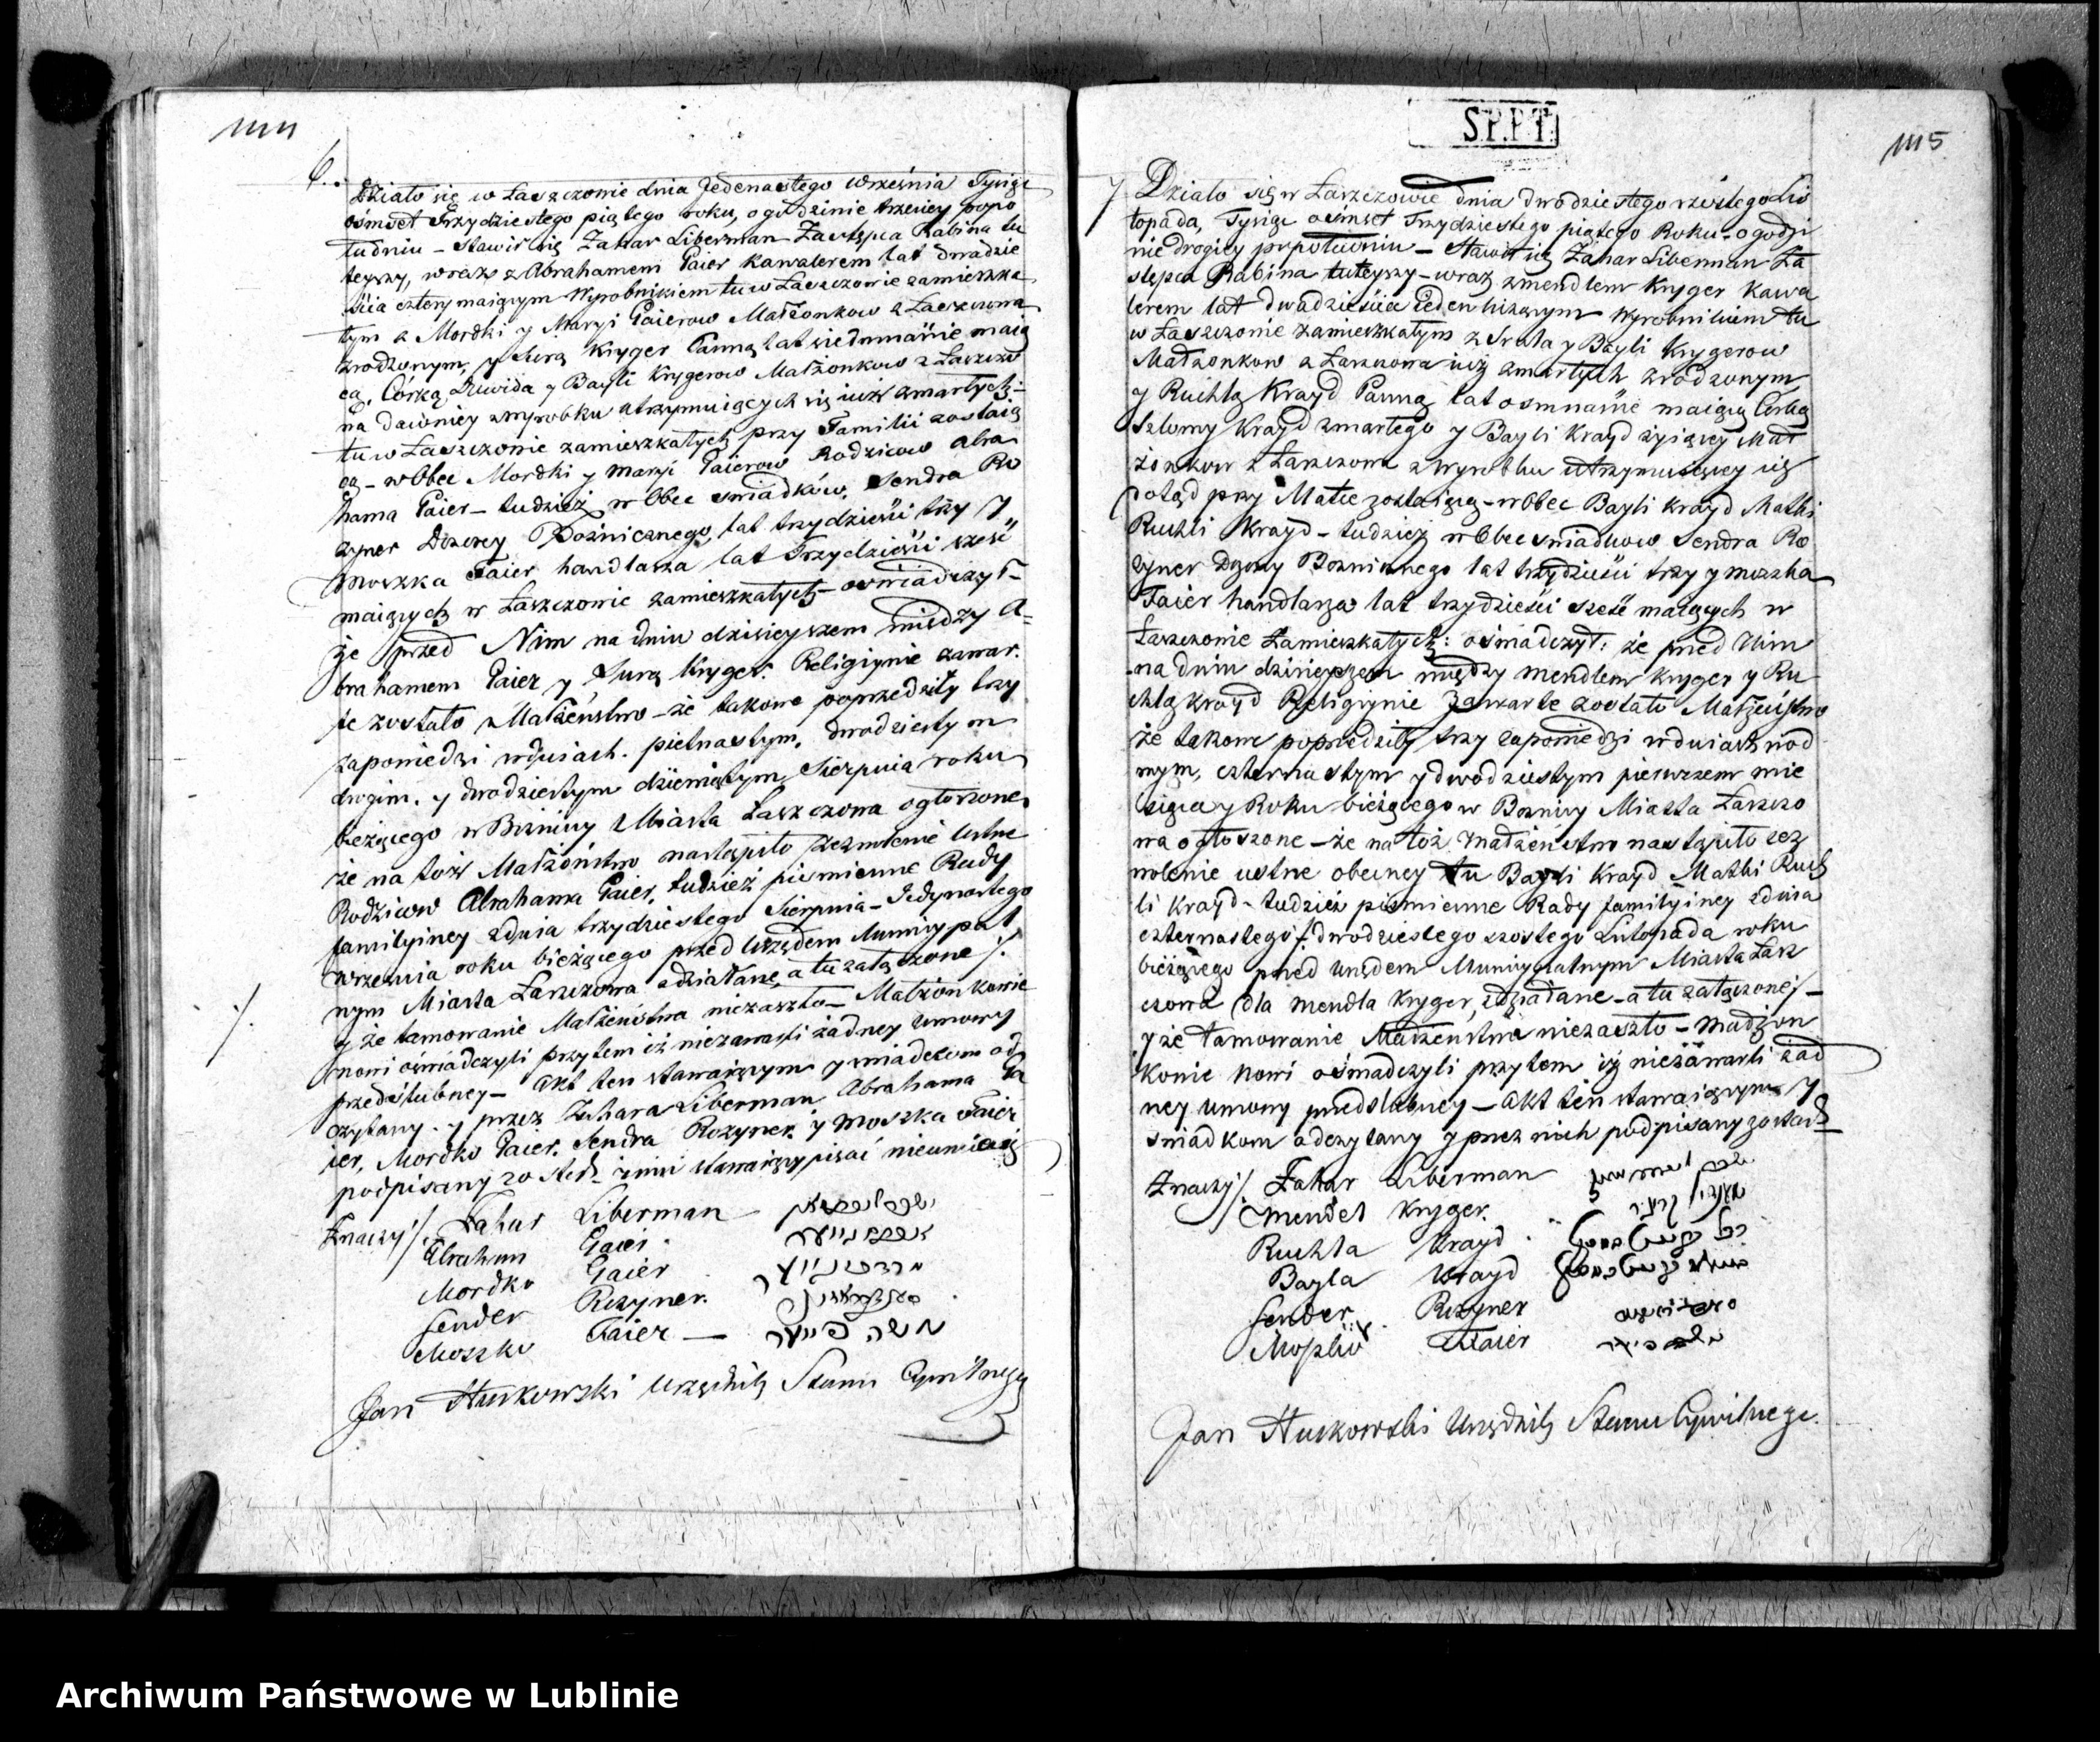 6.
Działo się w Łaszczowie dnia Jedenastego Września Tysiąc
ośmset Trzydziestego piątego roku, o godzinie trzeciey popo
łudniu – stawił się Zahar Liberman Zastępca Rabina tu
teyszy, wraz z Abrahamem Gaier kawalerem lat dwadzie
ścia cztery maiącym Wyrobnikiem tu w Łaszczowie zamieszka
łym z Mordki y Maryi Gaierow Małżonkow z Łaszczowa
zrodzonym, y Surą Kryger Panną lat siedmnaście maią
cą, Córką Dawida y Bayli Krygerow Małżonkow z Łaszczo
na dawniey z wyrobku utrzymuiących się iuż zmarłych –
tu w Łaszczowie zamieszkałych przy Familii zostaią
cą – w Obec Mordki y Maryi Gaierow Rodzicow Abra
hama Gaier – tudzież w Obec swiadków, Sendra Ro
zyner Dozorcy Bożnicznego, lat trzydzieści trzy y
Moszka Faier handlarza lat Trzydzieści sześć
maiących w Łaszczowie zamieszkałych – oswiadczył –
że przed Nim na dniu dzisieyszem między A=
brahamem Gaier y Surą Kryger. Religiynie zawar.
te zostało Małżeństwo – że takowe poprzedziły trzy
zapowiedzi w dniach. pietnastym, dwudziestym
drugim. y dwudziestym dziewiątym Sierpnia roku
bieżącego w Bożnicy Miasta Łaszczowa ogłoszone
że na toż Małżeństwo nastąpiło zezwolenie Ustne
Rodzicow Abrahama Gaier, tudzież piśmienne Rady
familyiney z dnia trzydziestego Sierpnia – Jedynastego
Września roku bieżącego przed Urzędem Municypal
nym Miasta Łaszczowa zdziałane, a tu załączone /.
y że tamowanie Małżeństwa niezaszło – Małżonkowie
nowi oświadczyli przytem iż niezawarli żadney Umowy
przedślubney – Akt ten stawaiącym y swiadkom od
czytany. y przez Zahara Liberman Abrahama Ga
ier, Mordko Gaier, Sendra Rozyner y Moszka Faier
podpisany został. inni stawaiący pisać nieumieią
Znaczy /. Zahar Liberman
Abraham Gaier
Mordko Gaier
Sender Rozyner
Moszko Faier – משה פייער
Jan Huskowski Urzędnik Stanu Cywilnego
S.P.P.T.
1115
7 Działo się w Łaszczowie dnia Dwodziestego szóstego Lis
topada, Tysiąc ośmset Trzydziestego piątego Roku – o godzi
nie drogiey popołudniu – Stawił się Zahar Liberman Za
stępca Rabina tuteyszy – wraz z Mendlem Kryger Kawa
lerem lat dwadzieścia Jeden liczącym Wyrobnikiem tu
w Łaszczowie zamieszkałym z Srula y Bayli Krygerow
Małżonkow z Łaszczowa iuż zmarłych zrodzonym
y Ruchlą Krayd Panną lat osmnaście maiącą Córką
Szlomy Krayd zmarłego y Bayli Krayd żyiącey Mał
żonkow z Łaszczowa z wyrobku utrzymuiącey się
dotąd przy Matce zostaiącą – w Obec Bayli Krayd Matki
Ruchli Krayd – tudzież w Obec swiadkow Sendra Ro
zyner Dozorcy Boznicznego lat trzydzieści trzy y Moszka
Faier handlarza lat trzydzieści sześć maiących w
Łaszczowie Zamieszkałych: oświadczył: że przed Nim
na dniu dzisieyszem między Mendlem Kryger y Ru
chlą Krayd Religiynie Zawarte zostało Małżeństwo
że takowe poprzedziły trzy zapowiedzi w dniach siód
mym, czternastym y dwodziestym pierwszem mie
siąca y Roku bieżącego w Boznicy Miasta Łaszczo
wa ogłoszone – że na toż Małżenstwo nastąpiło zez
wolenie ustne obecney tu Bayli Krayd Matki Ruch
li Krayd – tudzież piśmienne Rady familyiney z dnia
czternastego /. dwodziestego szóstego Listopada roku
bieżącego przed Urzędem Municypalnym Miasta Łasz
czowa dla Mendla Kryger, zdziałane – a tu załączone /. –
y że tamowanie Małżenstwa niezaszło – Małżon
kowie nowi oświadczyli przytem iż niezawarli żad
ney umowy przedslubney – Akt ten stawaiącym y
swiadkom odczytany y przez nich podpisany został
Znaczy /. Zahar Liberman
Mendel Kryger.
Ruchla Krayd
Bayla Krayd
Sender Rozyner
Moszko Faier
Jan Huskowski Urzędnik Stanu Cywilnego.
Archiwum Państwowe w Lublinie